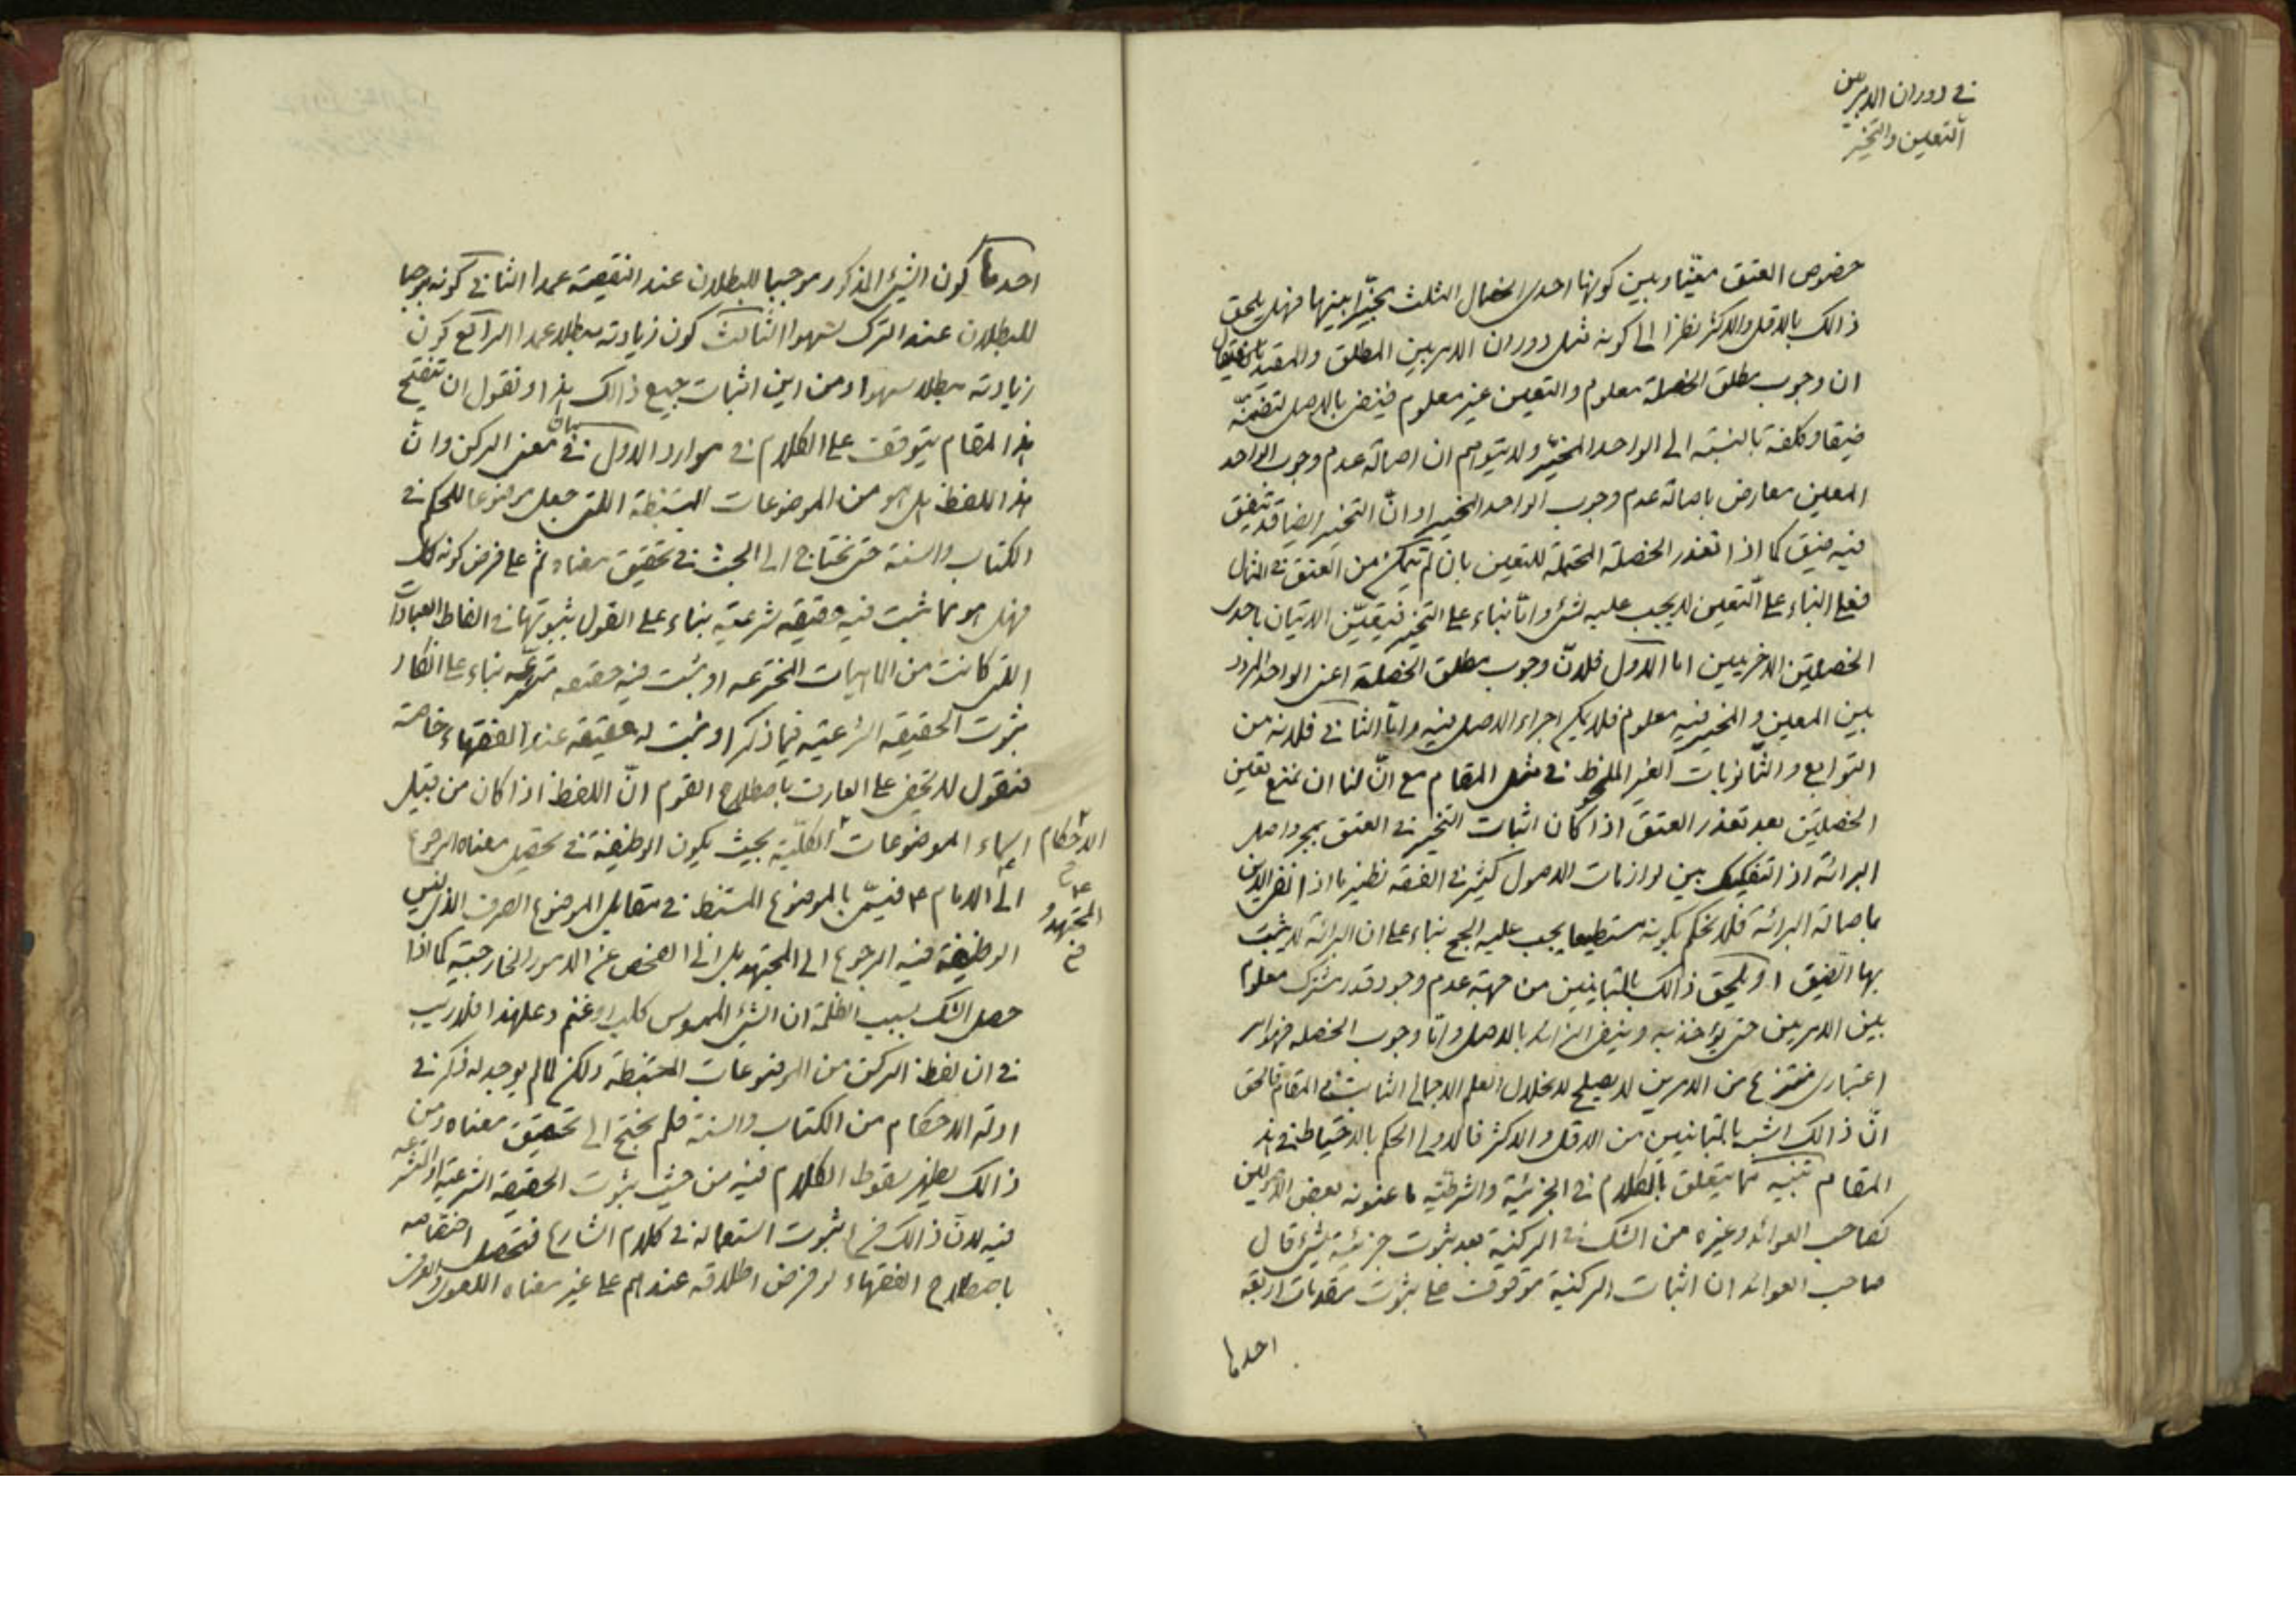 في دوران الامر بين
التعيين والتخيير
خصوص العتق معيّنا وبين كونها احدى الخصال الثلث مخيّرا بينها فهل يلحق
ذالك بالاقل والاكثر نظرا الى كونه مثل دوران الامر بين المطلق والمقيد
ان وجوب مطلق الخصلة معلوم والتعيين غير معلوم فينفى بالاصل لتضمنّه
ضيقا وكلفة بالنسبة الى الواحد المخيّر ولا يتوهم ان اصالة عدم وجوب الواحد
المعين معارض باصالة عدم وجوب الواحد المخير او انّ التخيير ايضا قد يتفق
فيه ضيق كما اذا تعذر الخصلة المحتملة للتعيين بان لم يتمكن من العتق في المثال
فعلى البناء على التعيين لا يجب عليه شئ وامّا بناء على التخيير فيتعيّن الاتيان باحدى
الخصلتين الاخريين اما الاول فلانّ وجوب مطلق الخصلة اعنى الواحد المردد
بين المعين والمخير فيه معلوم فلا يمكن اجراء الاصل فيه وامّا الثاني فلانه من
التوابع والثانويات الغير الملحوظ في مثل المقام مع انّ لنا ان نمنع تعين
الخصلتين بعد تعذر العتق اذا كان اثبات التخيير في العتق بمجرد اصل
البرائة اذ التفكيك بين لوازمات الاصول كثير في الفقه نظير ما اذا نفى الدين
باصالة البرائة فلا نحكم بكونه مستطيعا يجب عليه الحج بناء على ان البرائة لا يثبت
بها الضيق او يلحق ذالك بالمتباينين من جهة عدم وجود قدر مشترك معلوم
بين الامرين حتى يؤخذ به وينفى الزائد بالاصل وامّا وجوب الخصله فهو امر
اعتبارى منتزع من الامرين لا يصلح لانحلال العلم الاجمالي الثابت في المقام فالحق
انّ ذالك اشبه بالمتباينين من الاقل والاكثر فالاولى الحكم بالاحتياط في هذا
المقام تنبيه مما يتعلق بالكلام في الجزئية والشرطيّة ما عنونه بعض الاصوليين
كصاحب العوائد وغيره من الشك في الركنية بعد ثبوت جزئية شئ قال
صاحب العوائد ان اثبات الركنية موقوف على ثبوت مقدمات اربعة
احدها
احدها كون الشئ المذكور موجبا للبطلان عند النقيصة عمدا الثاني كونه موجبا
للبطلان عند الترك سهوا الثالث كون زيادته مبطلا عمدا الرابع كون
زيادته مبطلا سهوا ومن اين اثبات جميع ذالك هذا ونقول ان تنقيح
هذا المقام يتوقف على الكلام في موارد الاول في بيان معنى الركن وانّ
هذا اللفظ هل هو من الموضوعات المستنبطة التى جعل موضوعا للحكم في
الكتاب والسنة حتى نحتاج الى البحث في تحقيق معناه ثم على فرض كونه كك
فهل هو مما ثبت فيه حقيقه شرعية بناء على القول بثبوتها في الفاظ العبادات
التى كانت من الماهيات المخترعه او ثبت فيه حقيقه متشرعيّه بناء على انكار
ثبوت الحقيقه الشرعيه فيما ذكر او ثبت له حقيقة عند الفقهاء خاصة
فنقول لا يخفى على العارف باصطلاح القوم انّ اللفظ اذا كان من قبيل
اسماء الموضوعات الكلّية بحيث يكون الوظيفة في تحصيل معناه الرجوع
الاحكام
الى الامام ع فيسمّى بالموضوع المستنبط في مقابل الموضوع الصرف الذى ليس
المجتهد و
الوظيفة فيه الرجوع الى المجتهد بل الى الفحص عن الامور الخارجية كما اذا
حصل الشك بسبب الظلمة ان الشئ الملموس كلب او غنم وعلى هذا فلا ريب
في ان لفظ الركن من الموضوعات المستنبطة ولكن لما لم يوجد له ذكر في
ادلة الاحكام من الكتاب والسنة فلم نحتج الى تحقيق معناه ومن
ذالك يظهر سقوط الكلام فيه من حيث ثبوت الحقيقة الشرعية او المتشرعيه
فيه لانّ ذالك فرع ثبوت استعماله في كلام الشارع فتحصل اختصاصه
باصطلاح الفقهاء لو فرض اطلاقه عندهم على غير معناه اللغوى والعرفى